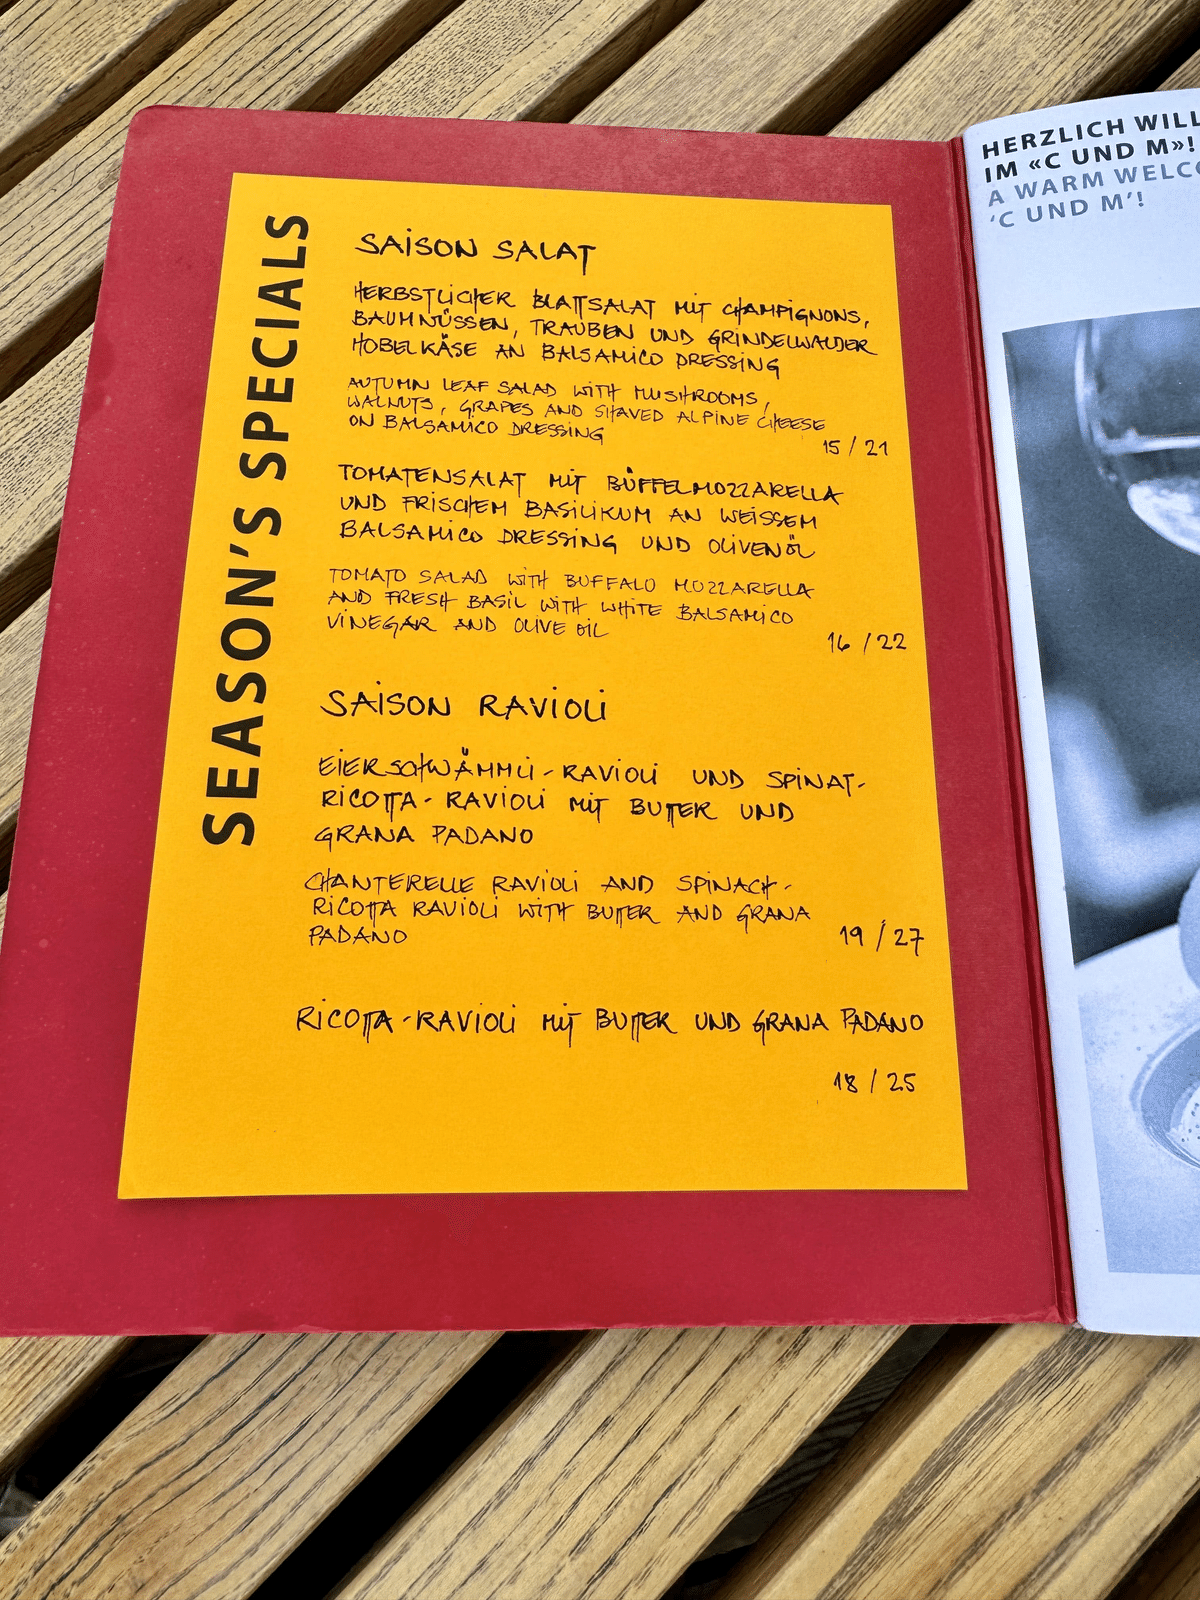 SEASON'S SPECIALS
SAISON SALAT
HERBSTLICHER BLATTSALAT MIT CHAMPIGNONS,
BAUMNÜSSEN, TRAUBEN UND GRINDELWALDER
HOBELKÄSE AN BALSAMICO DRESSING
AUTUMN LEAF SALAD WITH MUSHROOMS,
WALNUTS, GRAPES AND SHAVED ALPINE CHEESE
ON BALSAMICO DRESSING
15 / 21
TOMATENSALAT MIT BÜFFELMOZZARELLA
UND FRISCHEM BASILIKUM AN WEISSEM
BALSAMICO DRESSING UND OLIVENÖL
TOMATO SALAD WITH BUFFALO MOZZARELLA
AND FRESH BASIL WITH WHITE BALSAMICO
VINEGAR AND OLIVE OIL
16 / 22
SAISON RAVIOLI
EIERSCHWÄMMLI-RAVIOLI UND SPINAT-
RICOTTA-RAVIOLI MIT BUTTER UND
GRANA PADANO
CHANTERELLE RAVIOLI AND SPINACH-
RICOTTA RAVIOLI WITH BUTTER AND GRANA
PADANO
19 / 27
RICOTTA-RAVIOLI MIT BUTTER UND GRANA PADANO
18 / 25
HERZLICH WILL
IM «C UND M»!
A WARM WELCO
'C UND M'!